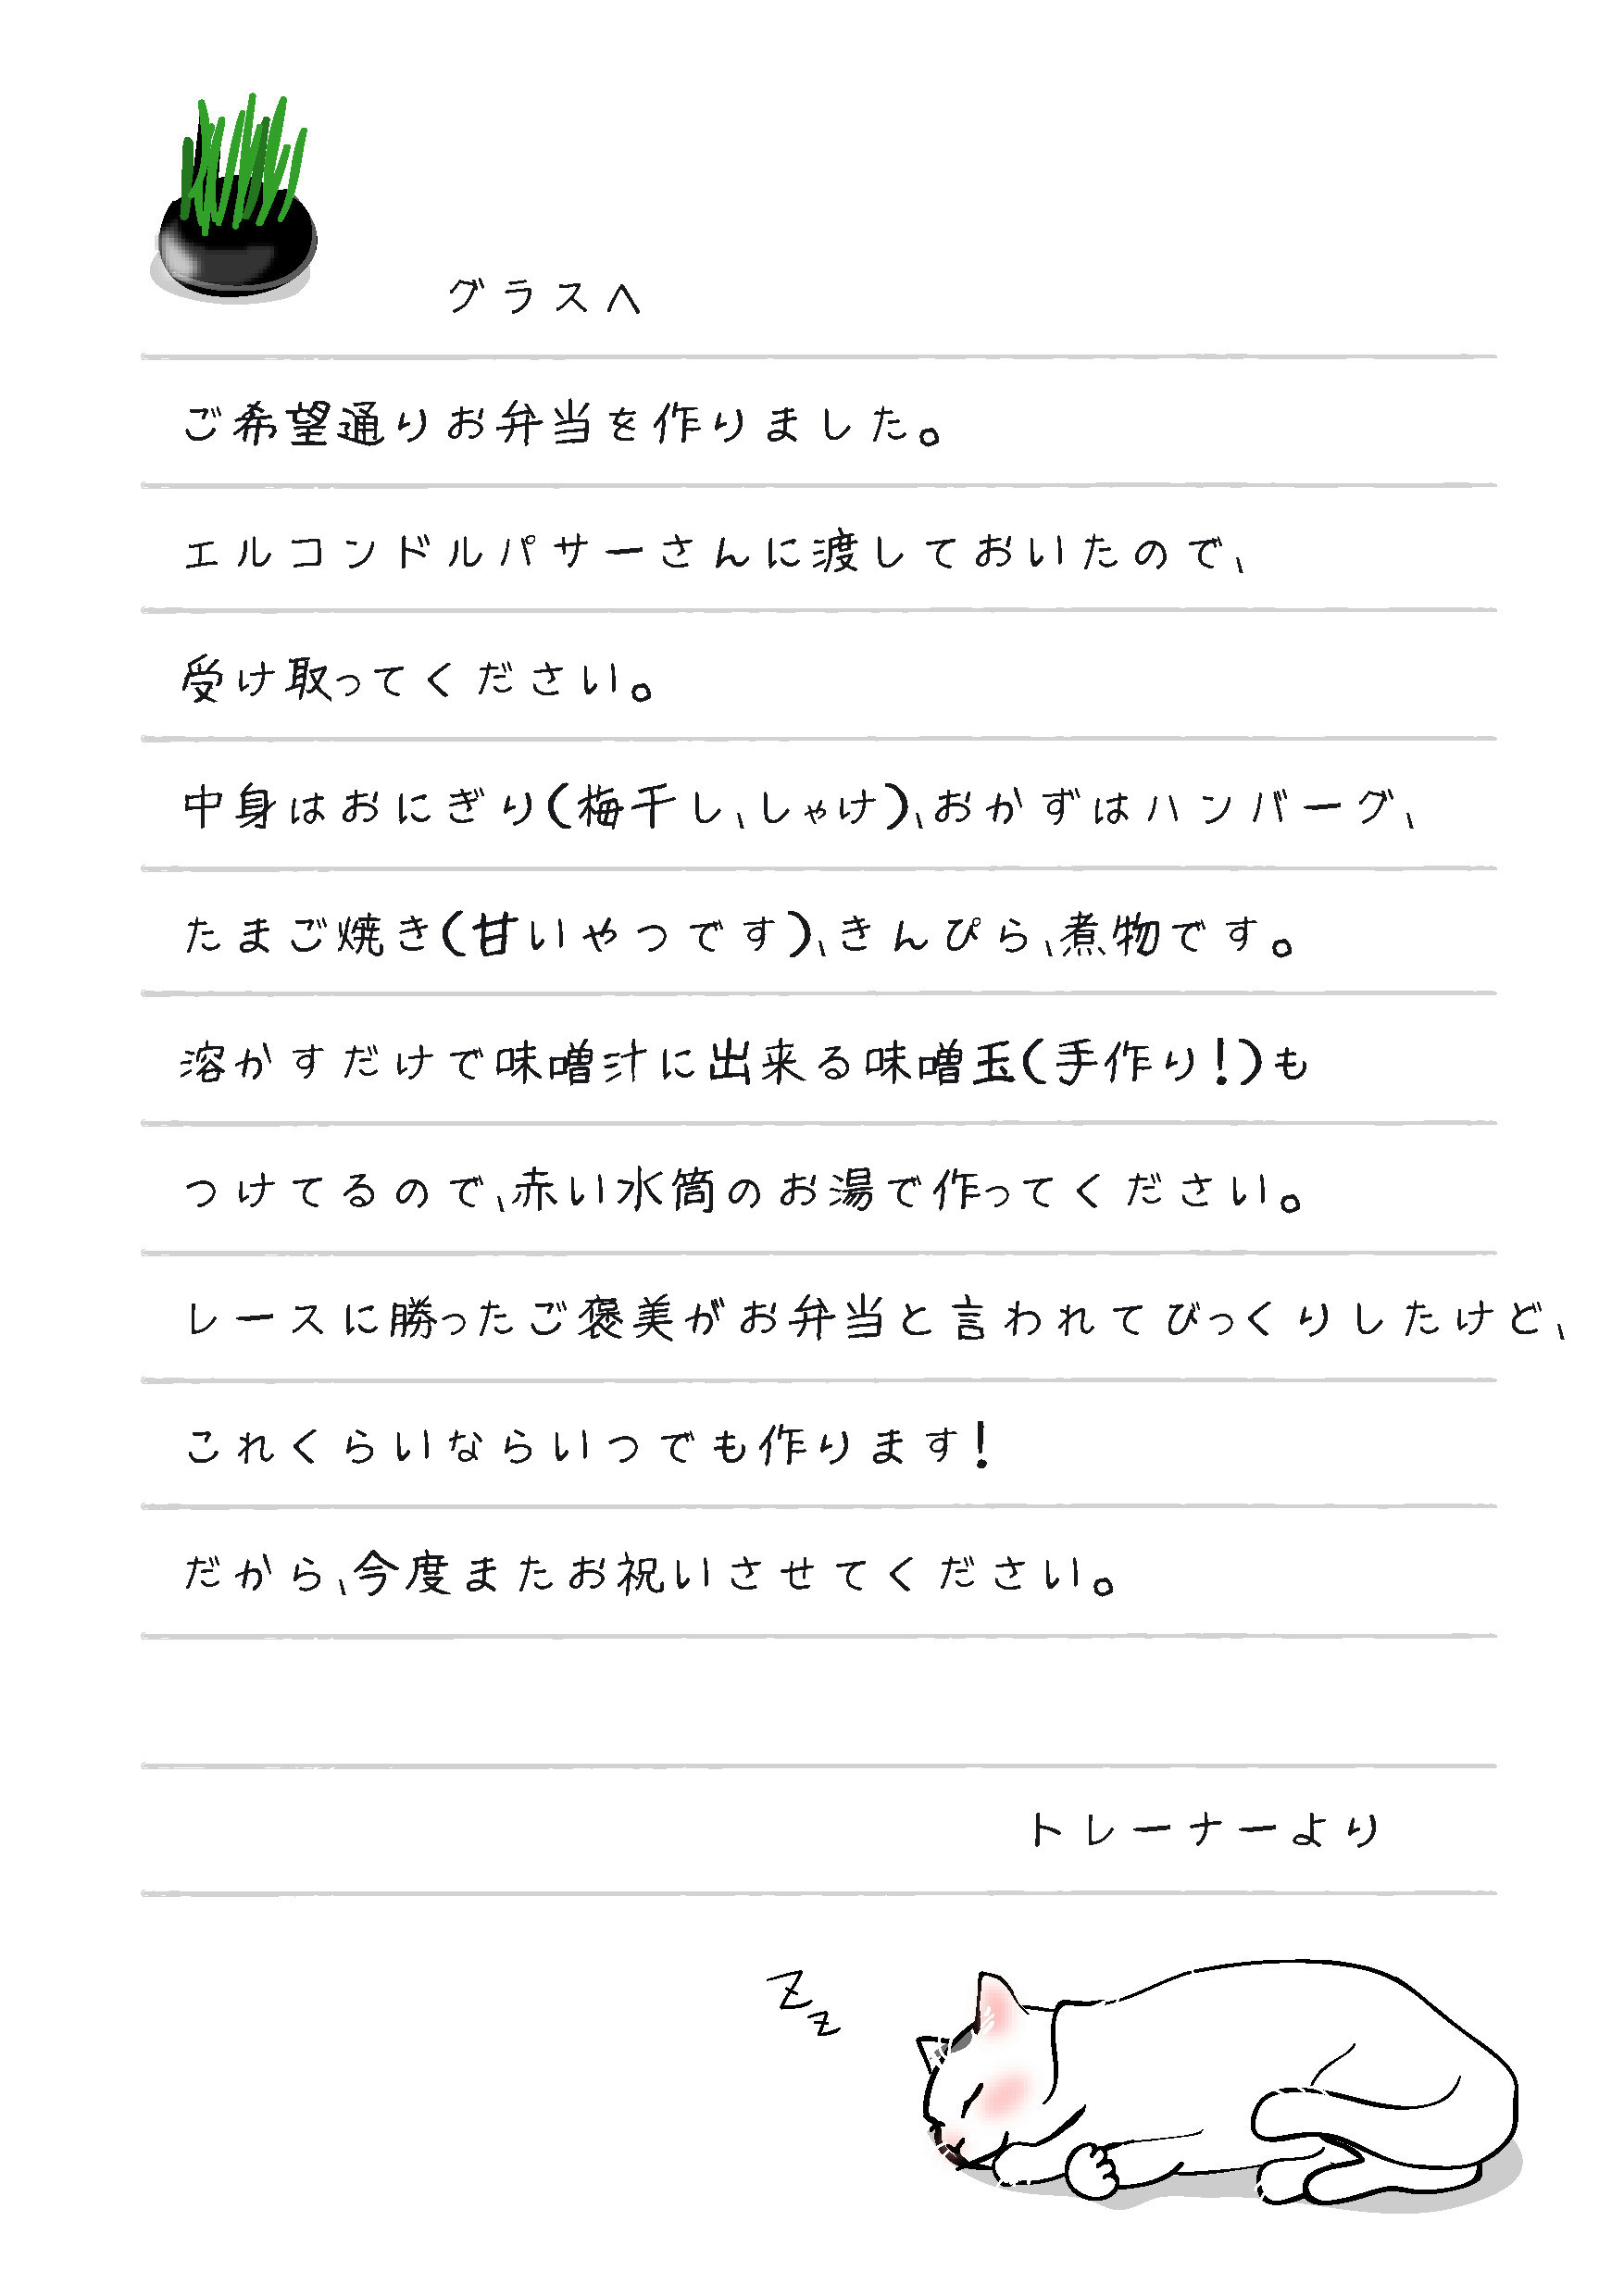 グラスへ
ご希望通りお弁当を作りました。
エルコンドルパサーさんに渡しておいたので、
受け取ってください。
中身はおにぎり(梅干し、しゃけ)、おかずはハンバーグ、
たまご焼き(甘いやつです)、きんぴら、煮物です。
溶かすだけで味噌汁に出来る味噌玉(手作り!)も
つけてるので、赤い水筒のお湯で作ってください。
レースに勝ったご褒美がお弁当と言われてびっくりしたけど、
これくらいならいつでも作ります!
だから、今度またお祝いさせてください。
トレーナーより
Zz